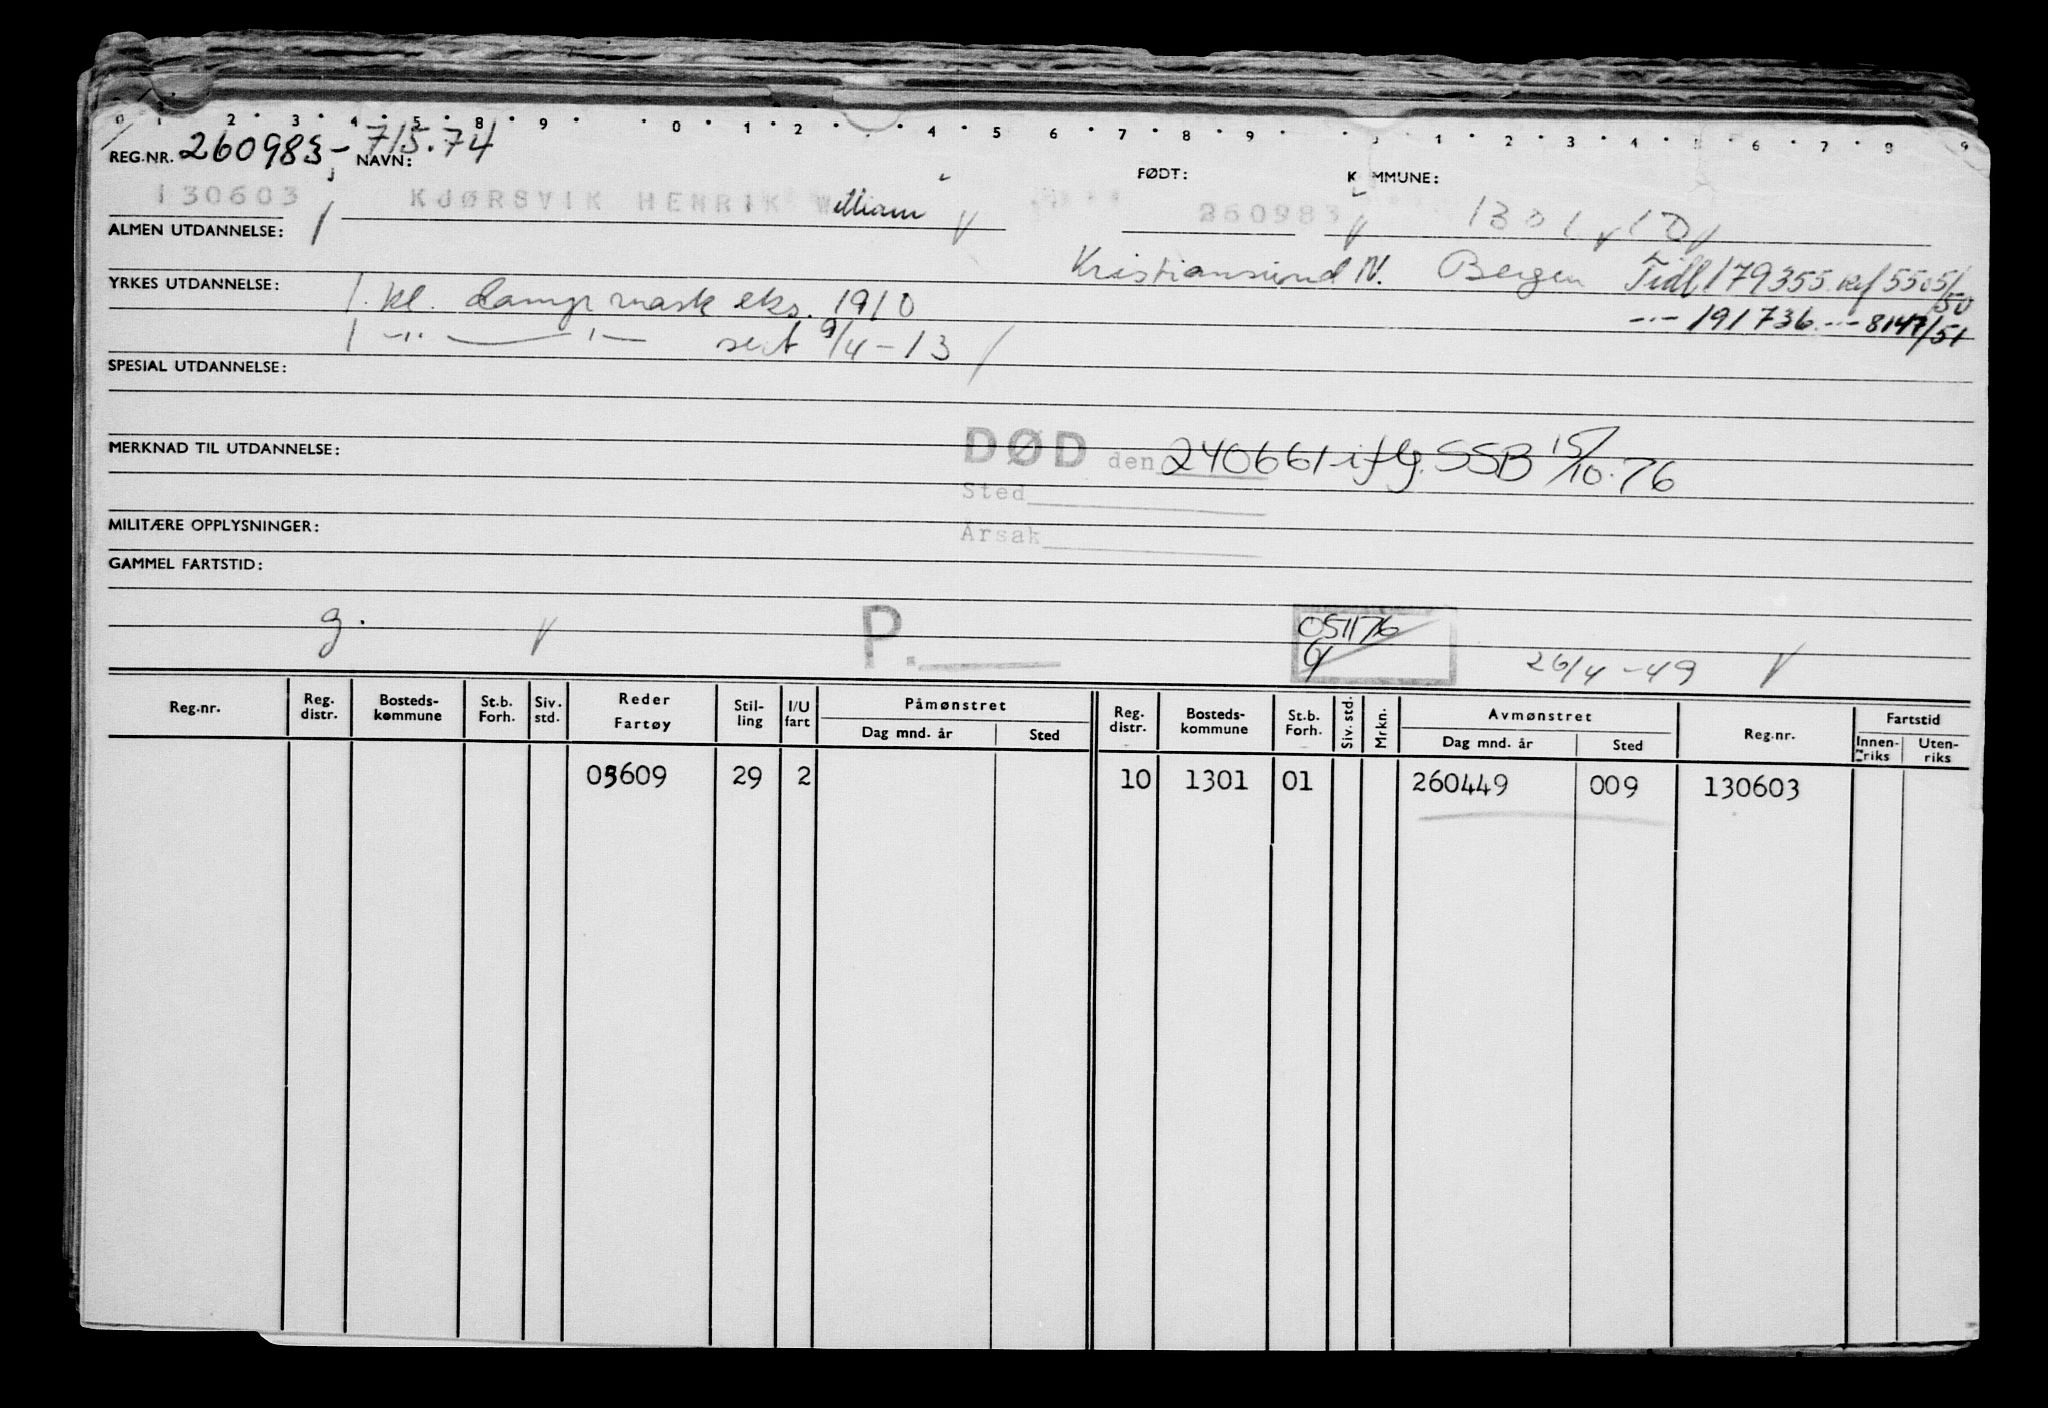 0 1 2 3 4 5 8 9 0 1 2 4 5 6 7 8 9 1 2 3 4 5 6 7 8 9
REG.NR. 260983- 715.74 NAVN: FØDT: KOMMUNE:
130603 KJØRSVIK HENRIK William 260983 1301 10
ALMEN UTDANNELSE:
Kristiansund N. Bergen Tidl 179355. Ref 5505/50
YRKES UTDANNELSE: 1. kl. damp mask eks. 1910
-..- 191736. -..- 8147/51
1 -..- -..- sert 9/4-13
SPESIAL UTDANNELSE:
MERKNAD TIL UTDANNELSE: DØD den 240661 iflg. SSB 15/10.76
Sted
MILITÆRE OPPLYSNINGER: Årsak
GAMMEL FARTSTID:
g. P. 051176
26/4-49
Reg.nr. Reg. distr. Bosteds-kommune St.b. Forh. Siv. std. Reder Fartøy Stil-ling I/U fart Påmønstret Dag mnd. år Sted Reg. distr. Bosteds-kommune St.b. Forh. Siv. std. Mrkn. Avmønstret Dag mnd. år Sted Reg.nr. Fartstid Innen-riks Uten-riks
29 2 10 1301 01 260449 009 130603